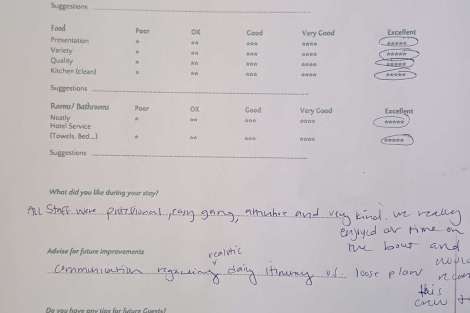 Suggestions
Food Poor OK Good Very Good Excellent
Presentation * ** *** **** *****
Variety * ** *** **** *****
Quality * ** *** **** *****
Kitchen (clean) * ** *** **** *****
Suggestions
Rooms/ Bathrooms Poor OK Good Very Good Excellent
Neatly * ** *** **** *****
Hotel Service
(Towels, Bed...) * ** *** **** *****
Suggestions
What did you like during your stay?
All Staff were proffional, easy going, attentive and very kind. we really
enjoyed our time on
the boat and
would
recom
this
crew
Advise for future improvements
realistic
Communication regarding daily itinerary vs. loose plan
Do you have any tips for future Guests?